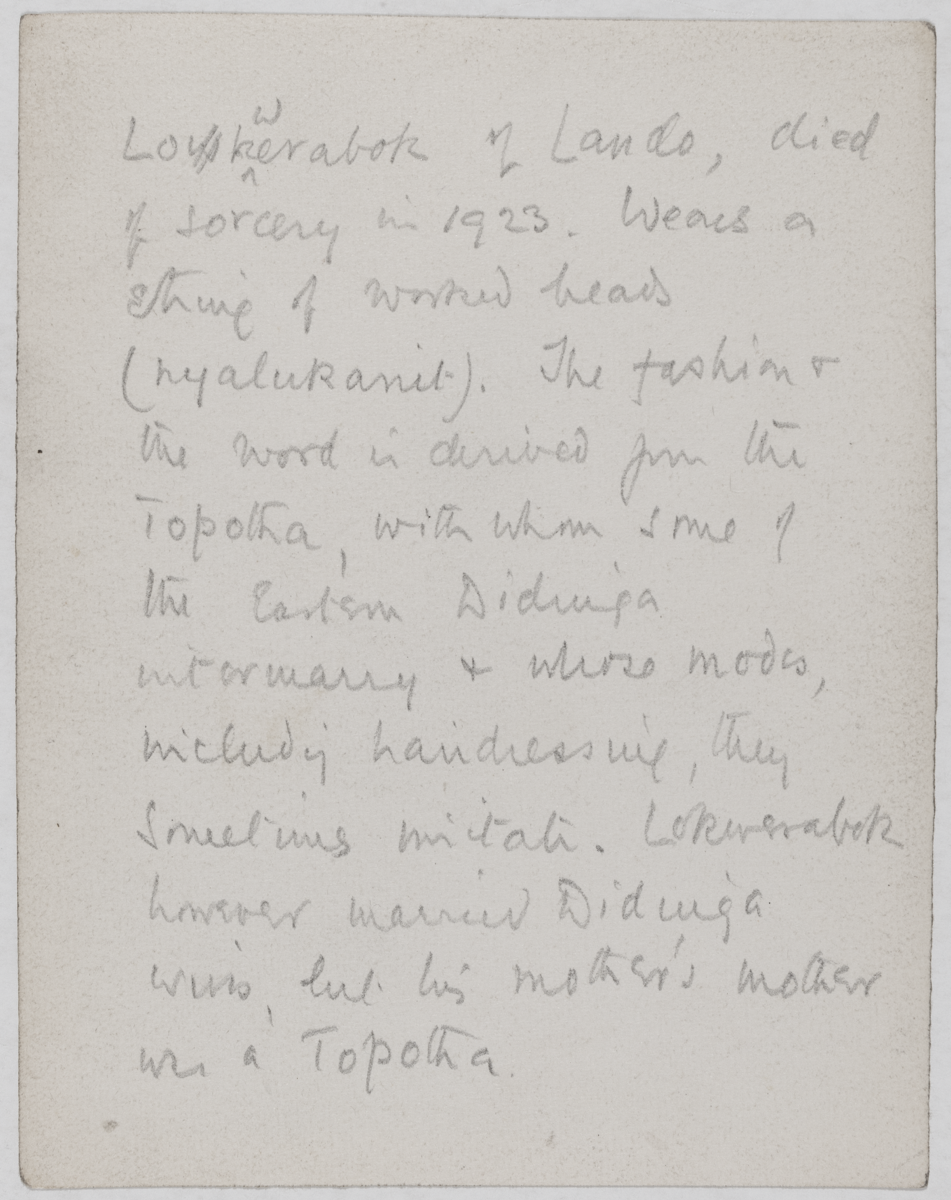 Lokwerabok of Lando, died
of sorcery in 1923. Wears a
string of worked beads
(nyalukanit). The fashion &
the word is derived from the
Topotha, with whom some of
the Eastern Didinga
intermarry & whose modes,
including hairdressing, they
sometimes imitate. Lokwerabok
however married Didinga
wives, but his mother's mother
was a Topotha.